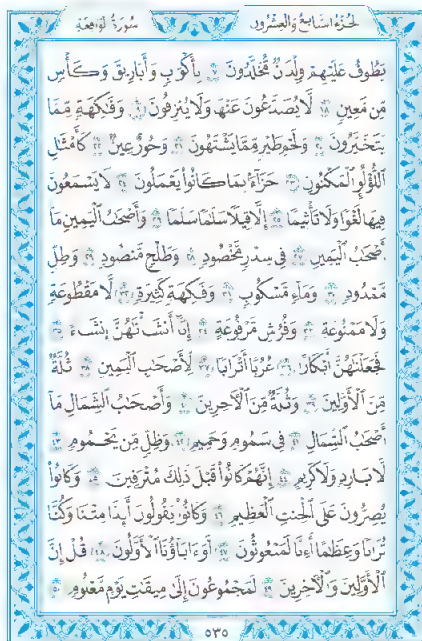 الجزء السابع والعشرون سورة الواقعة
يَطُوفُ عَلَيْهِمْ وِلْدَٰنٌ مُّخَلَّدُونَ ١٧ بِأَكْوَابٍ وَأَبَارِيقَ وَكَأْسٍ
مِّن مَّعِينٍ ١٨ لَّا يُصَدَّعُونَ عَنْهَا وَلَا يُنزِفُونَ ١٩ وَفَٰكِهَةٍ مِّمَّا
يَتَخَيَّرُونَ ٢٠ وَلَحْمِ طَيْرٍ مِّمَّا يَشْتَهُونَ ٢١ وَحُورٌ عِينٌ ٢٢ كَأَمْثَٰلِ
ٱللُّؤْلُؤِ ٱلْمَكْنُونِ ٢٣ جَزَآءًۢ بِمَا كَانُوا۟ يَعْمَلُونَ ٢٤ لَا يَسْمَعُونَ
فِيهَا لَغْوًا وَلَا تَأْثِيمًا ٢٥ إِلَّا قِيلًا سَلَٰمًا سَلَٰمًا ٢٦ وَأَصْحَٰبُ ٱلْيَمِينِ مَآ
أَصْحَٰبُ ٱلْيَمِينِ ٢٧ فِى سِدْرٍ مَّخْضُودٍ ٢٨ وَطَلْحٍ مَّنضُودٍ ٢٩ وَظِلٍّ
مَّمْدُودٍ ٣٠ وَمَآءٍ مَّسْكُوبٍ ٣١ وَفَٰكِهَةٍ كَثِيرَةٍ ٣٢ لَّا مَقْطُوعَةٍ
وَلَا مَمْنُوعَةٍ ٣٣ وَفُرُشٍ مَّرْفُوعَةٍ ٣٤ إِنَّآ أَنشَأْنَٰهُنَّ إِنشَآءً ٣٥
فَجَعَلْنَٰهُنَّ أَبْكَارًا ٣٦ عُرُبًا أَتْرَابًا ٣٧ لِّأَصْحَٰبِ ٱلْيَمِينِ ٣٨ ثُلَّةٌ
مِّنَ ٱلْأَوَّلِينَ ٣٩ وَثُلَّةٌ مِّنَ ٱلْءَاخِرِينَ ٤٠ وَأَصْحَٰبُ ٱلشِّمَالِ مَآ
أَصْحَٰبُ ٱلشِّمَالِ ٤١ فِى سَمُومٍ وَحَمِيمٍ ٤٢ وَظِلٍّ مِّن يَحْمُومٍ ٤٣
لَّا بَارِدٍ وَلَا كَرِيمٍ ٤٤ إِنَّهُمْ كَانُوا۟ قَبْلَ ذَٰلِكَ مُتْرَفِينَ ٤٥ وَكَانُوا۟
يُصِرُّونَ عَلَى ٱلْحِنثِ ٱلْعَظِيمِ ٤٦ وَكَانُوا۟ يَقُولُونَ أَئِذَا مِتْنَا وَكُنَّا
تُرَابًا وَعِظَٰمًا أَءِنَّا لَمَبْعُوثُونَ ٤٧ أَوَءَابَآؤُنَا ٱلْأَوَّلُونَ ٤٨ قُلْ إِنَّ
ٱلْأَوَّلِينَ وَٱلْءَاخِرِينَ ٤٩ لَمَجْمُوعُونَ إِلَىٰ مِيقَٰتِ يَوْمٍ مَّعْلُومٍ ٥٠
٥٣٥